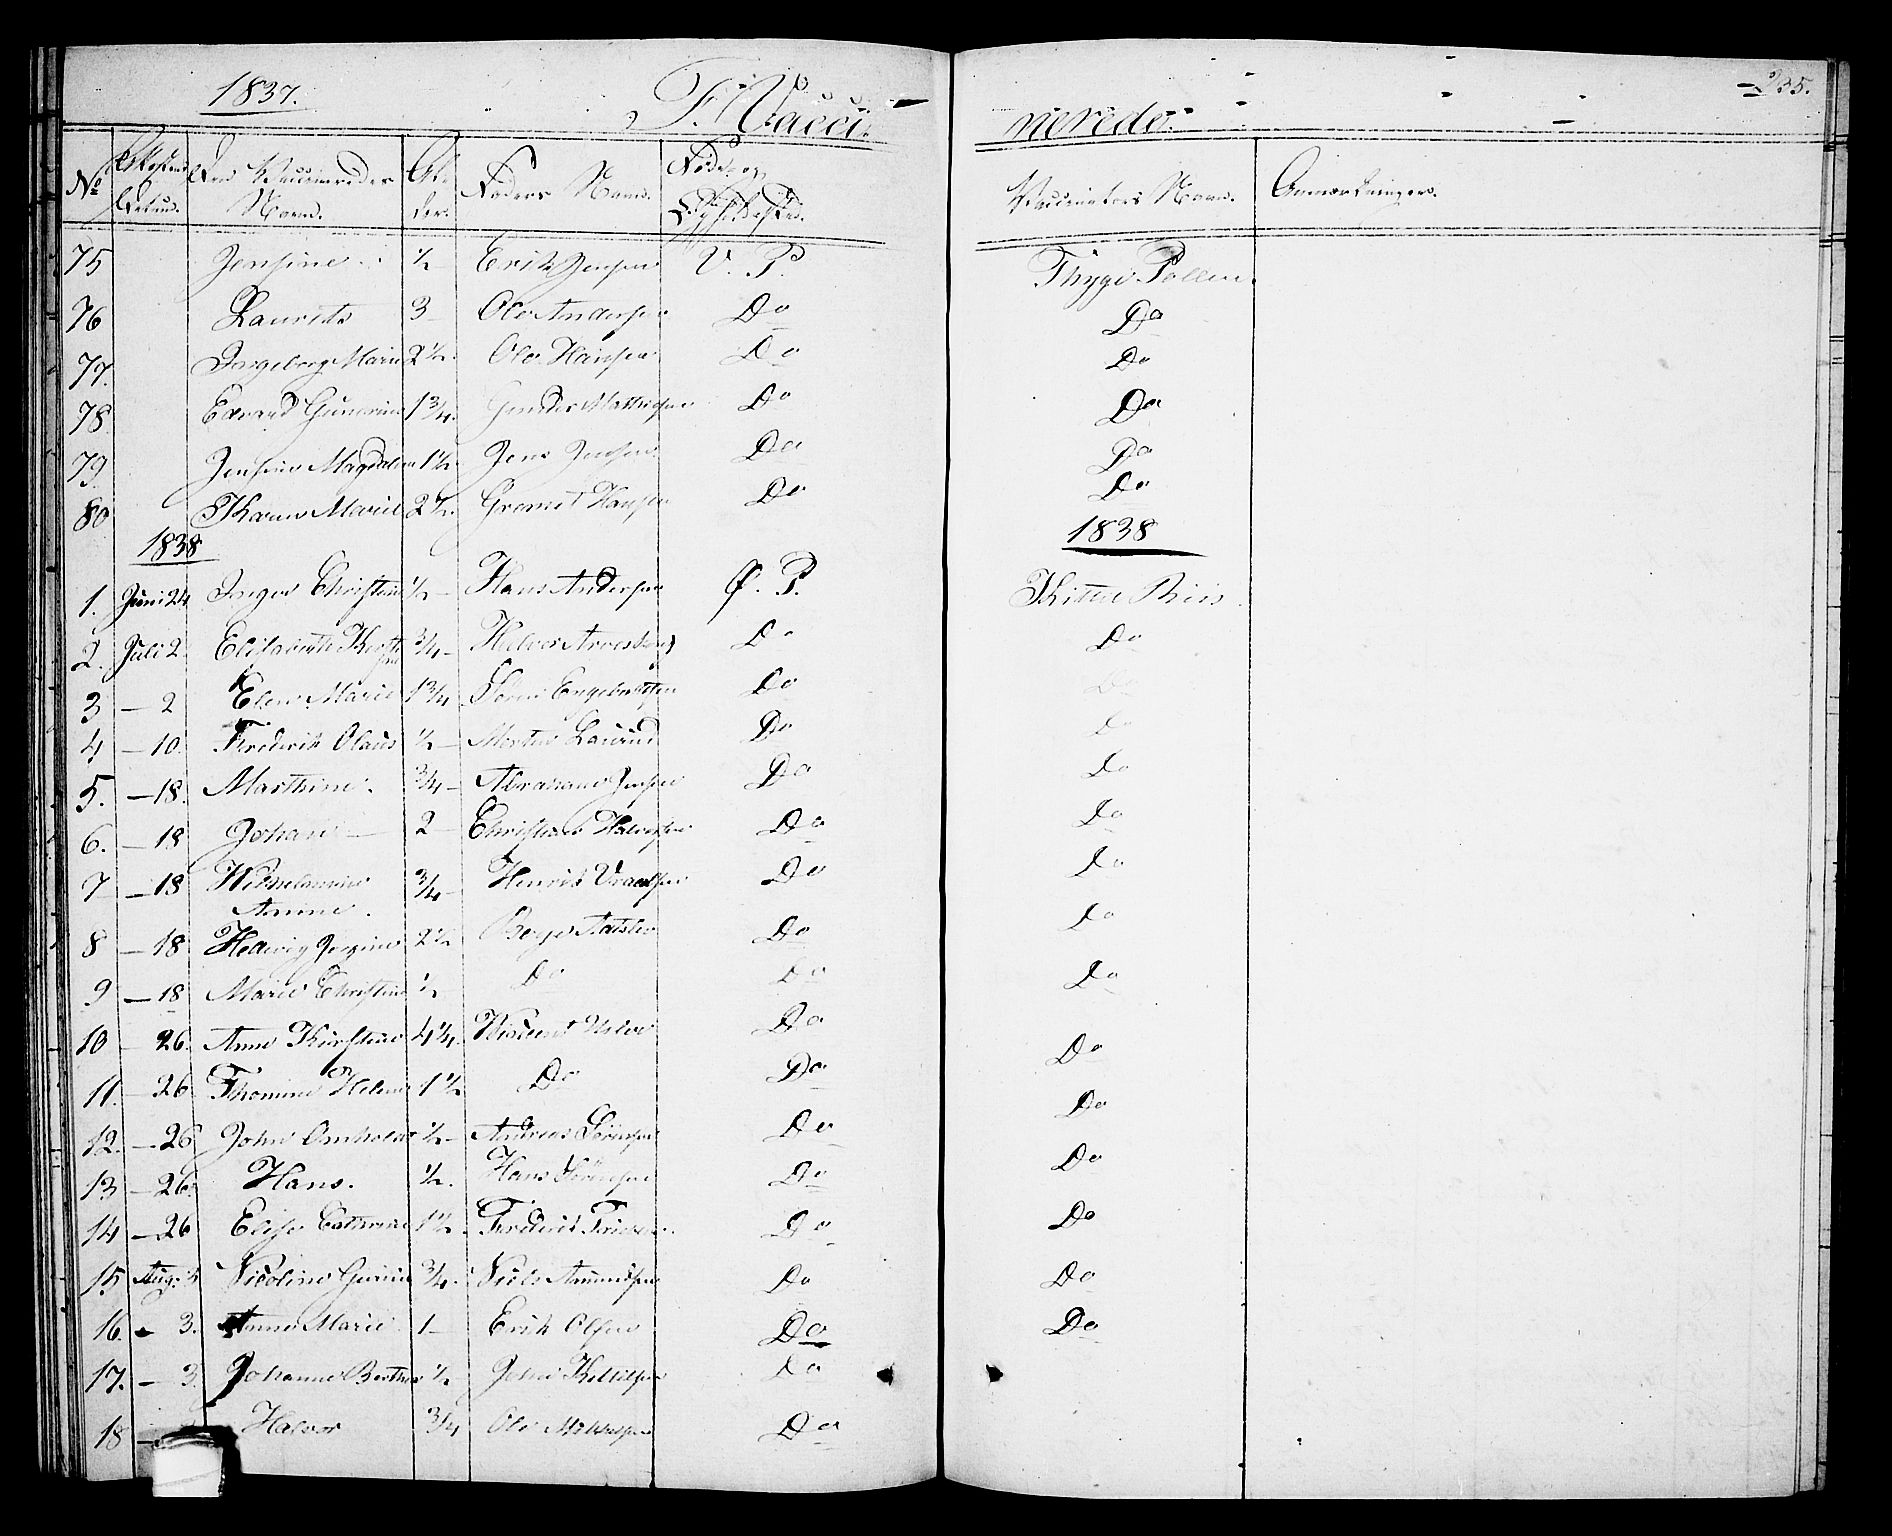 1837. F. Vacci- nerede. 235.
No Attestens Datum. Den Vaccineredes Navn. Al- der. Faders Navn. Føde- og Opholdssted. Vaccinateurs Navn. Anmærkninger.
75 Jensine ½ Erik Jensen V. P. Thyge Pollen.
76 Laurits 3 Ole Andersen Do Do
77. Ingeborg Marie 2½ Ole Hansen Do Do
78. Edvard Gunerius 1¾. Gunder Mathisen Do Do
79. Jensine Magdalene 1½ Jens Jensen Do Do
80 Karen Marie 2½. Hansen Do Do
1838 1838
1. Juni 24 Inger Christine ½ Hans Andersen Ø. P. Kitte Riis.
2. Juli 2 Elisabeth Kirstine ¾ Halvor Arvesen Do Do
3 — 2 Elen Marie 1¾ Søren Engebretsen Do Do
4 — 10. Frederik Olaus ½ Morten Laurud Do Do
5. — 18. Marthine. ¾ Abraham Jensen Do Do
6. — 18 Johan — 2 Christian Halvorsen Do Do
7 — 18 Wilhelmine Amine. ¾ Henrik Do Do
8 — 18 Hedevig Jorgine 2½ Do Do
9 — 18 Marie Christine ½ Do Do Do
10 26. Anne Kirstine 4¼. Do Do
11. — 26. Thomine Helene 1½ Do Do Do
12. — 26 John ½ Andreas Sørensen Do Do
13 — 26. Hans. ½. Hans Sørensen Do Do
14 — 26 Elise Cathrine 1½ Frederik Do Do
15 Aug. 3 Nicoline Gurine ¾. Niels Amundsen Do Do
16. - 3. Anne Marie 1 Erik Olsen Do Do
17. — 3. Johanne Berthea ½ John Kittilsen Do
18 — Halvor ¾ Ole Do